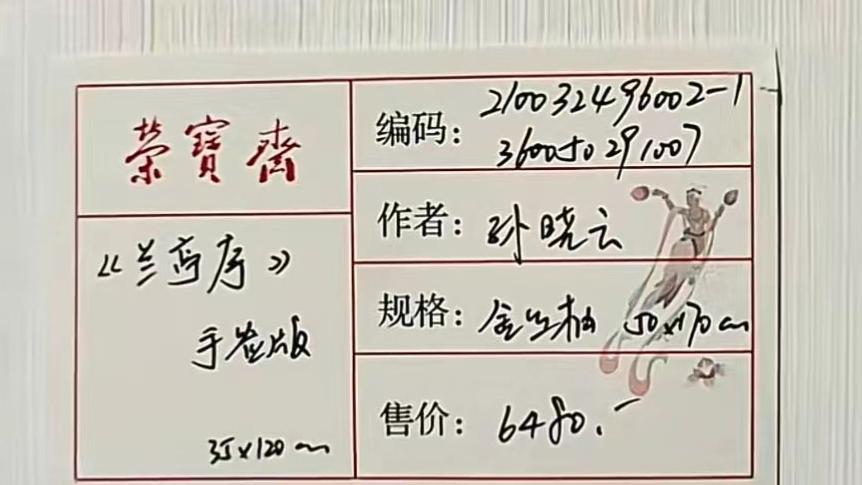 榮寶齋
《兰亭序》
手卷版
35×120cm
编码：210032496002-1
360050291007
作者：孙晓云
规格： 50×170cm
售价：6480.-